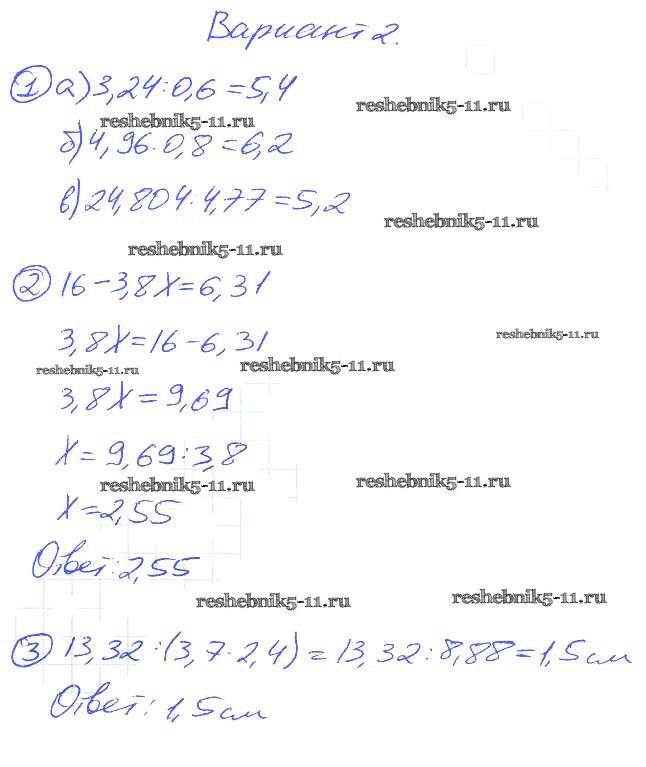 Вариант 2.
① а) 3,24:0,6=5,4
reshebnik5-11.ru
reshebnik5-11.ru
б) 4,96·0,8=6,2
в) 24,804·4,77=5,2
reshebnik5-11.ru
reshebnik5-11.ru
② 16-3,8х=6,31
3,8х=16-6,31
reshebnik5-11.ru
reshebnik5-11.ru
reshebnik5-11.ru
3,8х=9,69
х=9,69:3,8
reshebnik5-11.ru
reshebnik5-11.ru
х=2,55
Ответ: 2,55
reshebnik5-11.ru
reshebnik5-11.ru
③ 13,32:(3,7·2,4)=13,32:8,88=1,5см
Ответ: 1,5см